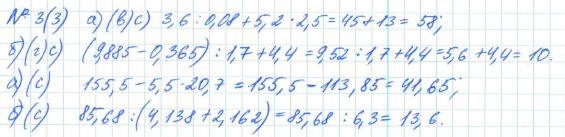 № 3(3) а)(в)с) 3,6 : 0,08 + 5,2 · 2,5 = 45 + 13 = 58;
б)(г)с) (9,885 - 0,365) : 1,7 + 4,4 = 9,52 : 1,7 + 4,4 = 5,6 + 4,4 = 10.
а)(с) 155,5 - 5,5 · 20,7 = 155,5 - 113,85 = 41,65;
б)(с) 85,68 : (4,138 + 2,162) = 85,68 : 6,3 = 13,6.